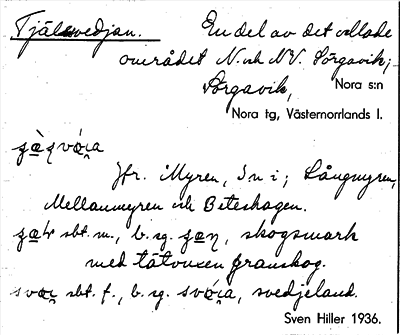 Tjälsvedjan. En del av det odlade
området N. och NV. Sörgavik;
Sörgavik,
Nora s:n
Nora tg, Västernorrlands l.
Jfr. Myren, 3 n i; Långmyren,
Mellanmyren och Beteshagen.
sbt. m., b. sg. skogsmark
med tätvuxen granskog.
sbt. f., b. sg. svedjeland.
Sven Hiller 1936.